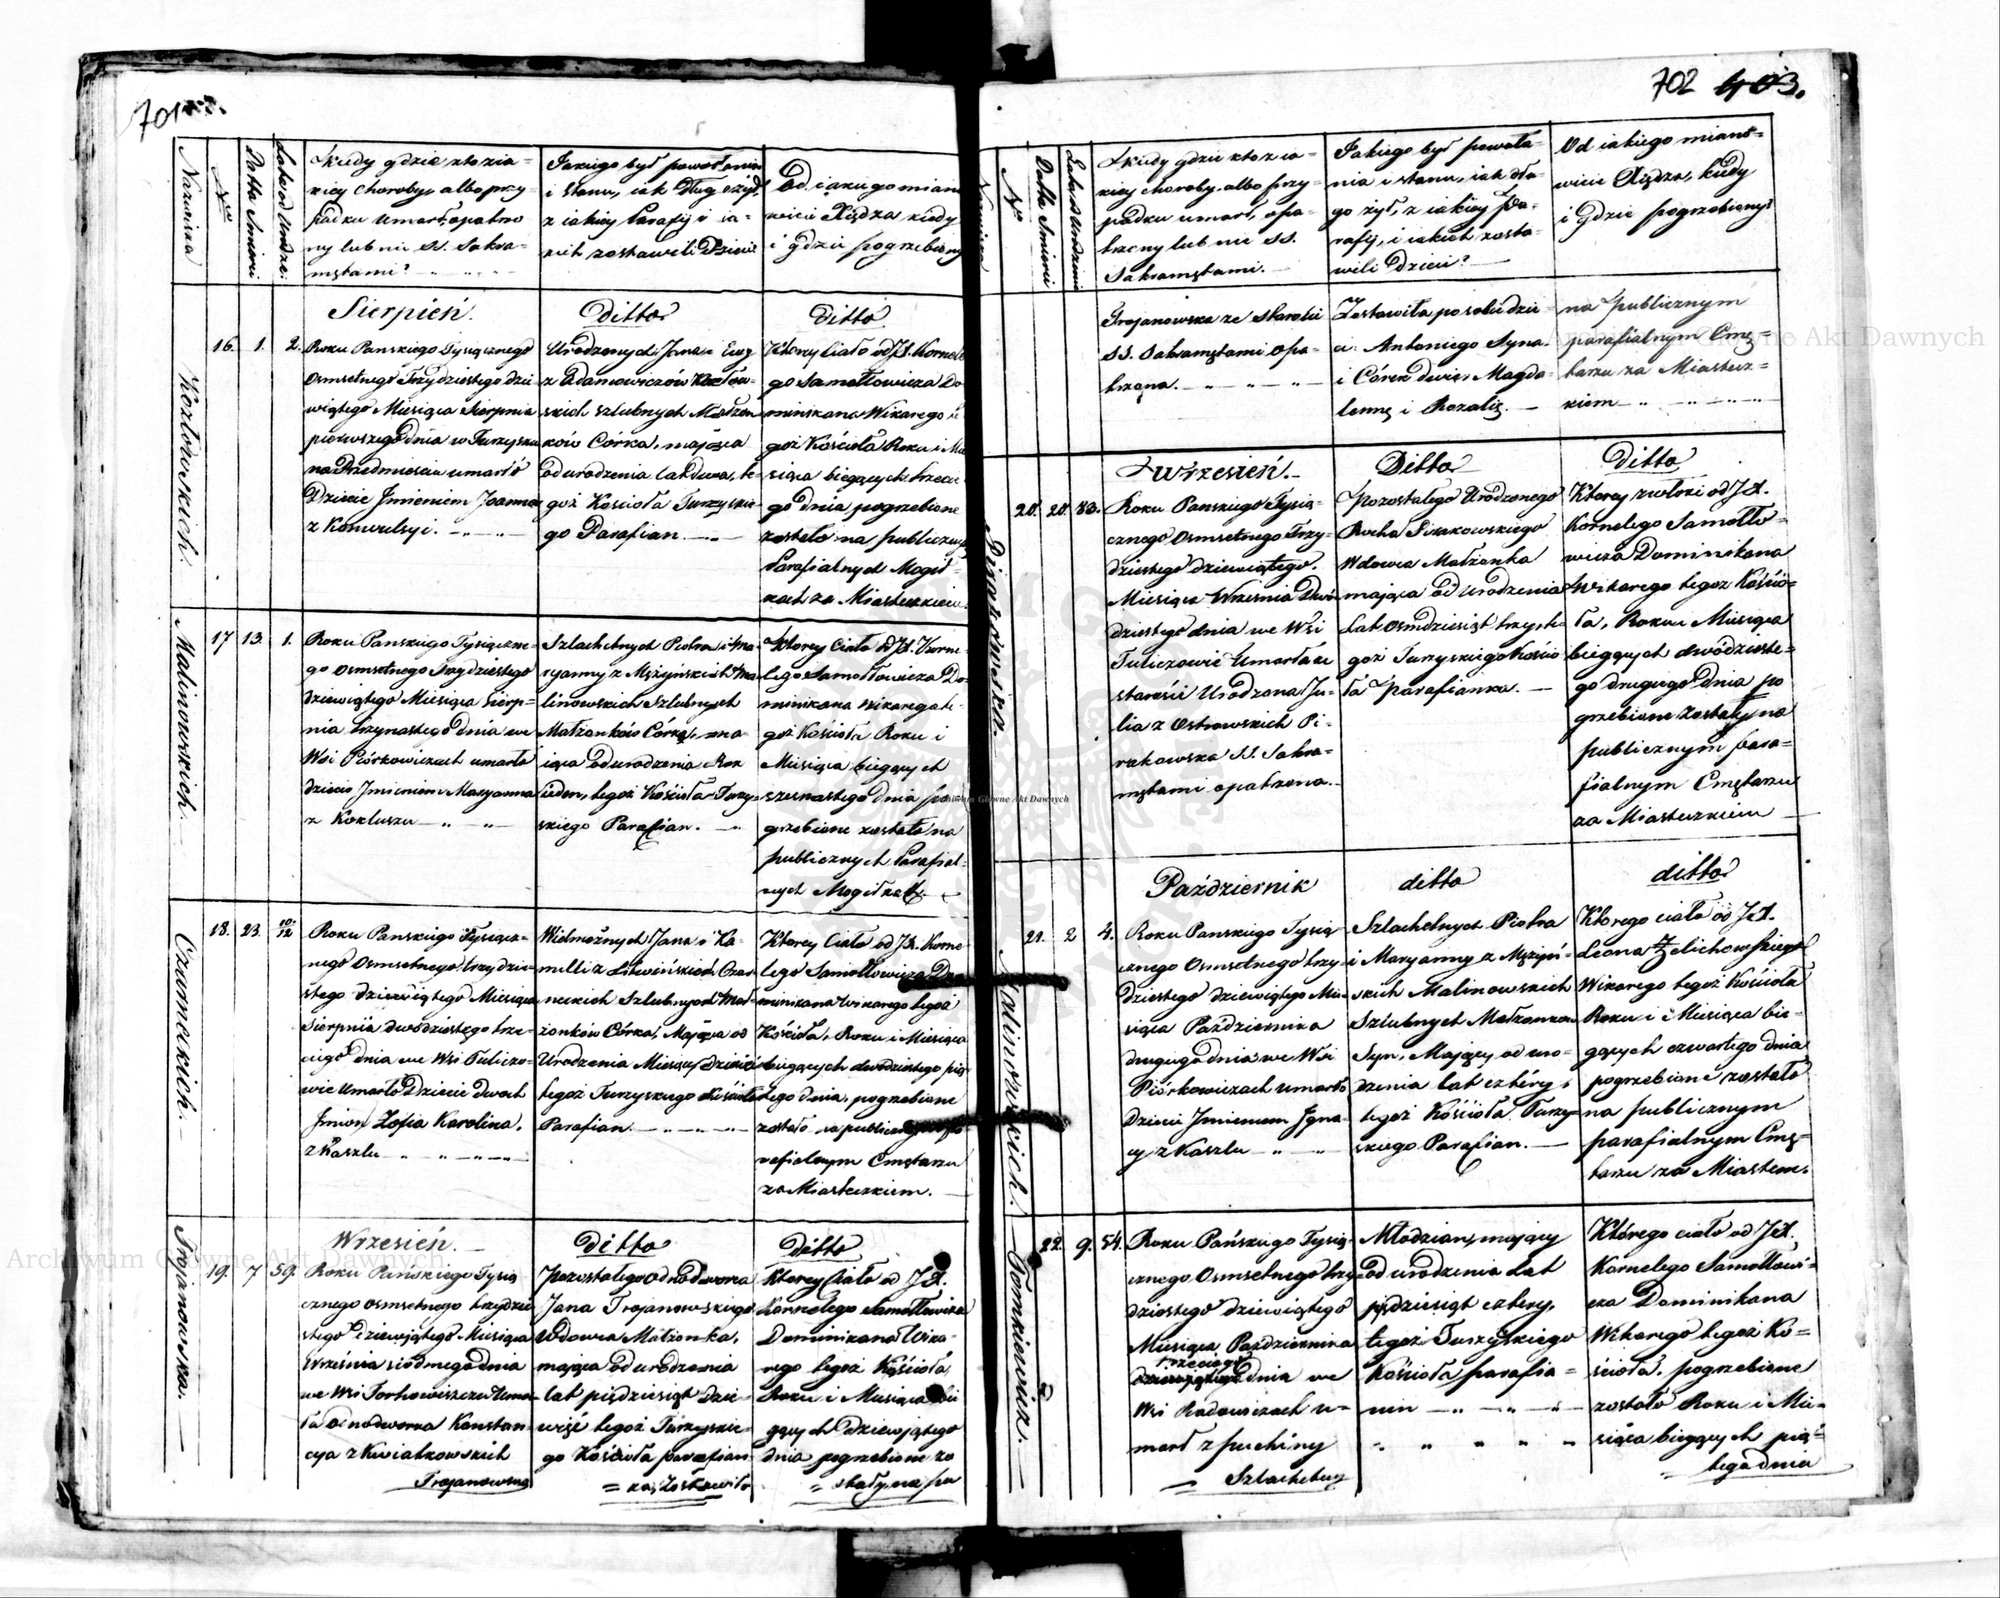 701
Nazwiska
Nro
Datta Smierci
Lata od Urodze:
Kiedy gdzie kto z ia=
kiey choroby albo przy=
padku umarł, opatrzo
ny lub nie SS. Sakra=
mętami?
Jakiego był powołania
i stanu, iak długo żył,
z iakiey Parafij i ia=
kich zostawił Dzieci
Od iakiego miano
wicie Xiędza kiedy
i gdzie pogrzebiony
Kozłowskich.
16.
1.
2.
Sierpień.
Roku Panskiego Tysiącznego
Osmsetnego Trzydziestego dzie
wiątego Miesiąca Sierpnia
pierwszego dnia w Turzysku
na Przedmieściu umarło
Dziecie Jmieniem Joanna
z Konwulsyi.
Ditto
Urodzonych Jana i Ewy
z Adamowiczów Kozłow=
skich szlubnych Małżon
ków Córka, maiąca
od urodzenia lat dwa, te=
goż Kościoła Turzyskie=
go Parafian.
Ditto
Ktorey Ciało od JX. Kornele
go Samotłowicza Do
minikana Wikarego te
goż Kościoła Roku i Mie
siąca bieżących trzecie
go dnia pogrzebione
zostało na publicznych
Parafialnych Mogił=
kach za Miasteczkiem
Malinowskich.
17
13.
1.
Roku Panskiego Tysiączne=
go Osmsetnego Trzydziestego
dziewiątego Miesiąca Sierp=
nia trzynastego dnia we
Wsi Piórkowiczach umarło
dziecie Jmieniem Maryanna
z Kokluszu
Szlachetnych Piotra i Ma
ryanny z Mżzyńskich Ma
linowskich Szlubnych
Małżonków Córka, ma
iąca od urodzenia Rok
ieden, tegoż Kościoła Turzy=
skiego Parafian.
Ktorey Ciało od JX. Korne=
lego Samotłowicza Do
minikana Wikarego te=
goż Kościoła Roku i
Miesiąca bieżących
szesnastego dnia po
grzebione zostało na
publicznych Parafial=
nych Mogiłkach.
Czarneckich.
18.
23.
10/12
Roku Panskiego Tysiącz=
nego Osmsetnego trzydzie
stego dziewiątego Miesiąca
Sierpnia dwódziestego trze=
ciego dnia we Wsi Tuliczo=
wie Umarło Dziecie dwoch
Jmion Zofia Karolina.
z Kaszlu
Wielmożnych Jana i Ka=
milli z Litwińskich Czar
neckich Szlubnych Mał=
żonków Córka, Maiąca od
Urodzenia Miesięcy Dziesięć
tegoż Turzyskiego Kościoła
Parafian.
Ktorey Ciało od JX. Korne
lego Samotłowicza Do
minikana Wikarego tegoż
Kościoła, Roku i Miesiąca
bieżących dwódziestego pią
tego dnia, pogrzebione
zostało na publicznym Pa
rafialnym Cmętarzu
za Miasteczkiem.
Trojanowska.
19.
7
59.
Wrzesień.
Roku Pańskiego Tysią
cznego Osmsetnego trzydzie
stego dziewiątego Miesiąca
Września siodmego dnia
we Wsi Torhowiszczu Umar
ła Odnodworka Konstan=
cya z Kwiatkowskich
Trojanowska
Ditto
Pozostałego odnodworca
Jana Trojanowskiego
Wdowa Małżonka,
maiąca od urodzenia
lat pięćdziesiąt dzie=
więć tegoż Turzyskie=
go Kościoła parafian
= ka, Zostawiła
Ditto
Ktorey Ciało od JX.
Kornelego Samotłowicza
Dominikana Wika=
rego tegoż Kościoła
Roku i Miesiąca bie
żących Dziewiątego
dnia pogrzebione zo
= stały na pu
702 403.
Nazwiska
Nro
Datta Smierci
Lata od Urodzenia
Kiedy gdzie kto z ia=
kiey choroby, albo przy=
padku umarł, opa=
trzony lub nie SS.
Sakramętami.
Jakiego był powoła=
nia i stanu, iak dłu=
go żył, z iakiey Pa=
rafij, i iakich zosta=
wili Dzieci?
Od iakiego miano=
wicie Xiędza, kiedy
i gdzie pogrzebiony?
Trojanowska ze Starości
SS. Sakramętami opa=
trzona.
Zostawiła po sobie dzie
ci. Antoniego Syna
i Córek dwie, Magda=
lennę i Rozalię.
na publicznym
parafialnym Cmę=
tarzu za Miastecz=
kiem
20.
20.
83.
Wrzesień.
Roku Panskiego Tysią=
cznego Osmsetnego Trzy=
dziestego dziewiątego.
Miesiąca Września Dwó=
dziestego dnia we Wsi
Tuliczowie Umarła ze
starości Urodzona Ju=
lia z Ostrowskich Pi=
rakowska SS. Sakra=
mętami opatrzona.
Ditto
Pozostałego Urodzonego
Rocha Pirakowskiego
Wdowa Małżonka
maiąca od Urodzenia
Lat Osmdziesiąt trzy te
goż Turzyskiego Kościo
ła Parafianka.
Ditto
Ktorey zwłoki od JX.
Kornelego Samotło=
wicza Dominikana
Wikarego tegoż Kościo=
ła, Roku i Miesiąca
bieżących dwódzieste=
go drugiego dnia po
grzebione zostały na
publicznym para=
fialnym Cmętarzu
za Miasteczkiem
Malinowskich.
21.
2
4.
Październik
Roku Panskiego Tysią
cznego Osmsetnego trzy
dziestego dziewiątego Mie
siąca Października
drugiego dnia we Wsi
Piórkowiczach umarło
Dziecie Jmieniem Igna=
cy z Kaszlu
ditto
Szlachetnych Piotra
i Maryanny z Mżzyń=
skich Malinowskich
Szlubnych Małżonków
Syn, Maiący od uro=
dzenia lat cztéry,
tegoż Kościoła Turzy=
skiego Parafian.
ditto
Ktorego ciało od JX.
Leona Żelichowskiego
Wikarego tegoż Kościoła
Roku i Miesiąca bie=
żących czwartego dnia
pogrzebione zostało
na publicznym
parafialnym Cmę=
tarzu za Miastem.
Tomkiewicz.
22.
9.
54.
Roku Pańskiego Tysią
cznego Osmsetnego trzy=
dziestego dziewiątego
Miesiąca Października
trzeciego
dnia we
Wsi Radowiczach u=
marł z puchliny
= Szlachetny
Młodzian, maiący
od urodzenia Lat
pięćdziesiąt cztery,
tegoż Turzyskiego
Kościoła parafia=
nin
Którego ciało od JX.
Kornelego Samotłowi=
cza Dominikana
Wikarego tegoż Ko=
ścioła. pogrzebione
zostało Roku i Mie=
siąca bieżących pią=
tego dnia
Archiwum Główne Akt Dawnych
Archiwum Główne Akt Dawnych
Archiwum Główne Akt Dawnych